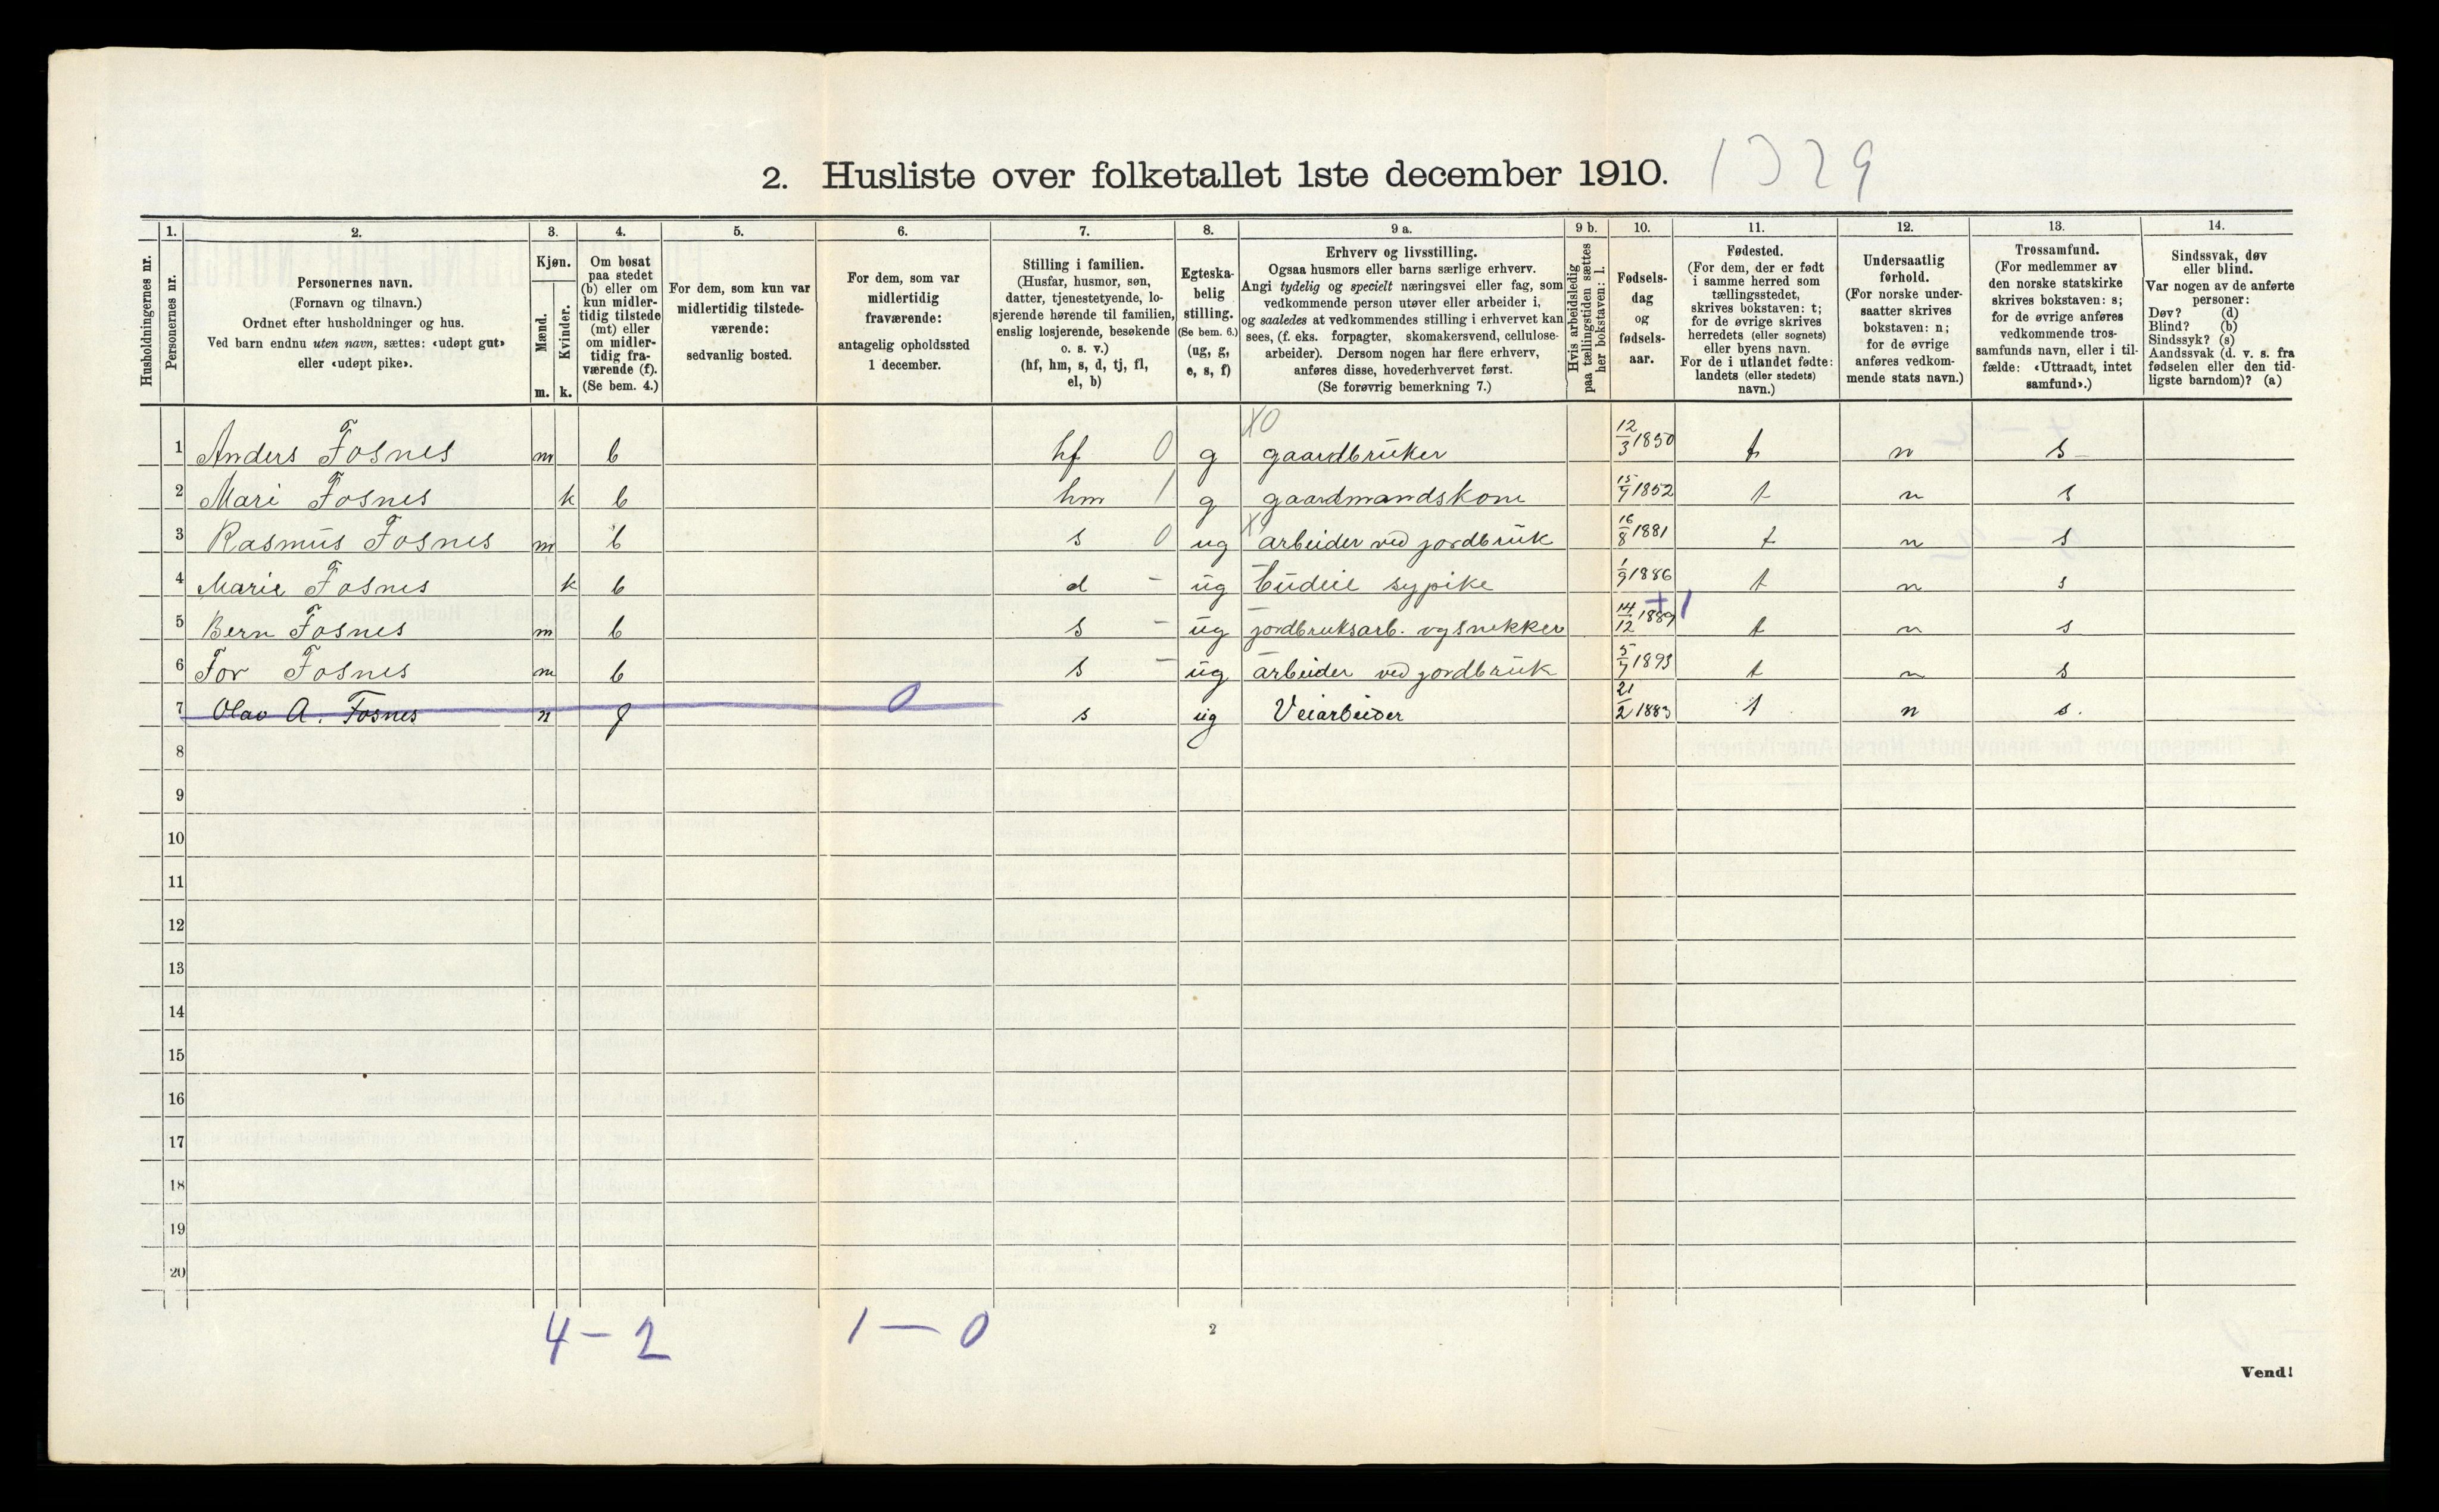 2. Husliste over folketallet 1ste december 1910. 1329
Husholdningernes nr.
1. Personernes nr.
2. Personernes navn.
(Fornavn og tilnavn.)
Ordnet efter husholdninger og hus.
Ved barn endnu uten navn, sættes: «udøpt gut»
eller «udøpt pike».
3. Kjøn.
Mænd. m.
Kvinder. k.
4. Om bosat
paa stedet
(b) eller om
kun midler-
tidig tilstede
(mt) eller
om midler-
tidig fra-
værende (f).
(Se bem. 4.)
5. For dem, som kun var
midlertidig tilstede-
værende:
sedvanlig bosted.
6. For dem, som var
midlertidig
fraværende:
antagelig opholdssted
1 december.
7. Stilling i familien.
(Husfar, husmor, søn,
datter, tjenestetyende, lo-
sjerende hørende til familien,
enslig losjerende, besøkende
o. s. v.)
(hf, hm, s, d, tj, fl,
el, b)
8. Egteska-
belig
stilling.
(Se bem. 6.)
(ug, g,
e, s, f)
9 a. Erhverv og livsstilling.
Ogsaa husmors eller barns særlige erhverv.
Angi tydelig og specielt næringsvei eller fag, som
vedkommende person utøver eller arbeider i,
og saaledes at vedkommendes stilling i erhvervet kan
sees, (f. eks. forpagter, skomakersvend, cellulose-
arbeider). Dersom nogen har flere erhverv,
anføres disse, hovederhvervet først.
(Se forøvrig bemerkning 7.)
9 b. Hvis arbeidsledig
paa tællingstiden sættes
her bokstaven: l.
10. Fødsels-
dag
og
fødsels-
aar.
11. Fødested.
(For dem, der er født
i samme herred som
tællingsstedet,
skrives bokstaven: t;
for de øvrige skrives
herredets (eller sognets)
eller byens navn.
For de i utlandet fødte:
landets (eller stedets)
navn.)
12. Undersaatlig
forhold.
(For norske under-
saatter skrives
bokstaven: n;
for de øvrige
anføres vedkom-
mende stats navn.)
13. Trossamfund.
(For medlemmer av
den norske statskirke
skrives bokstaven: s;
for de øvrige anføres
vedkommende tros-
samfunds navn, eller i til-
fælde: «Uttraadt, intet
samfund».)
14. Sindssvak, døv
eller blind.
Var nogen av de anførte
personer:
Døv? (d)
Blind? (b)
Sindssyk? (s)
Aandssvak (d. v. s. fra
fødselen eller den tid-
ligste barndom)? (a)
X0
1 Anders Fosnes m b hf 0 g gaardbruker 12/3 1850 t n s
2 Mari Fosnes k b hm 1 g gaardmandskone 15/9 1852 t n s
3 Rasmus Fosnes m b s 0 ug X arbeider ved jordbruk 16/8 1881 t n s
4 Marie Fosnes k b d - ug sypike 1/9 1886 t n s
5 Bern Fosnes m b s - ug jordbruksarb. og snekker 14/12 1889 +1 t n s
6 Tor Fosnes m b s - ug arbeider ved jordbruk 5/7 1893 t n s
7 Olav A. Fosnes m f 0 s ug Veiarbeider 21/2 1883 t n s.
8
9
10
11
12
13
14
15
16
17
18
19
20
4 - 2 1 - 0
2
Vend!